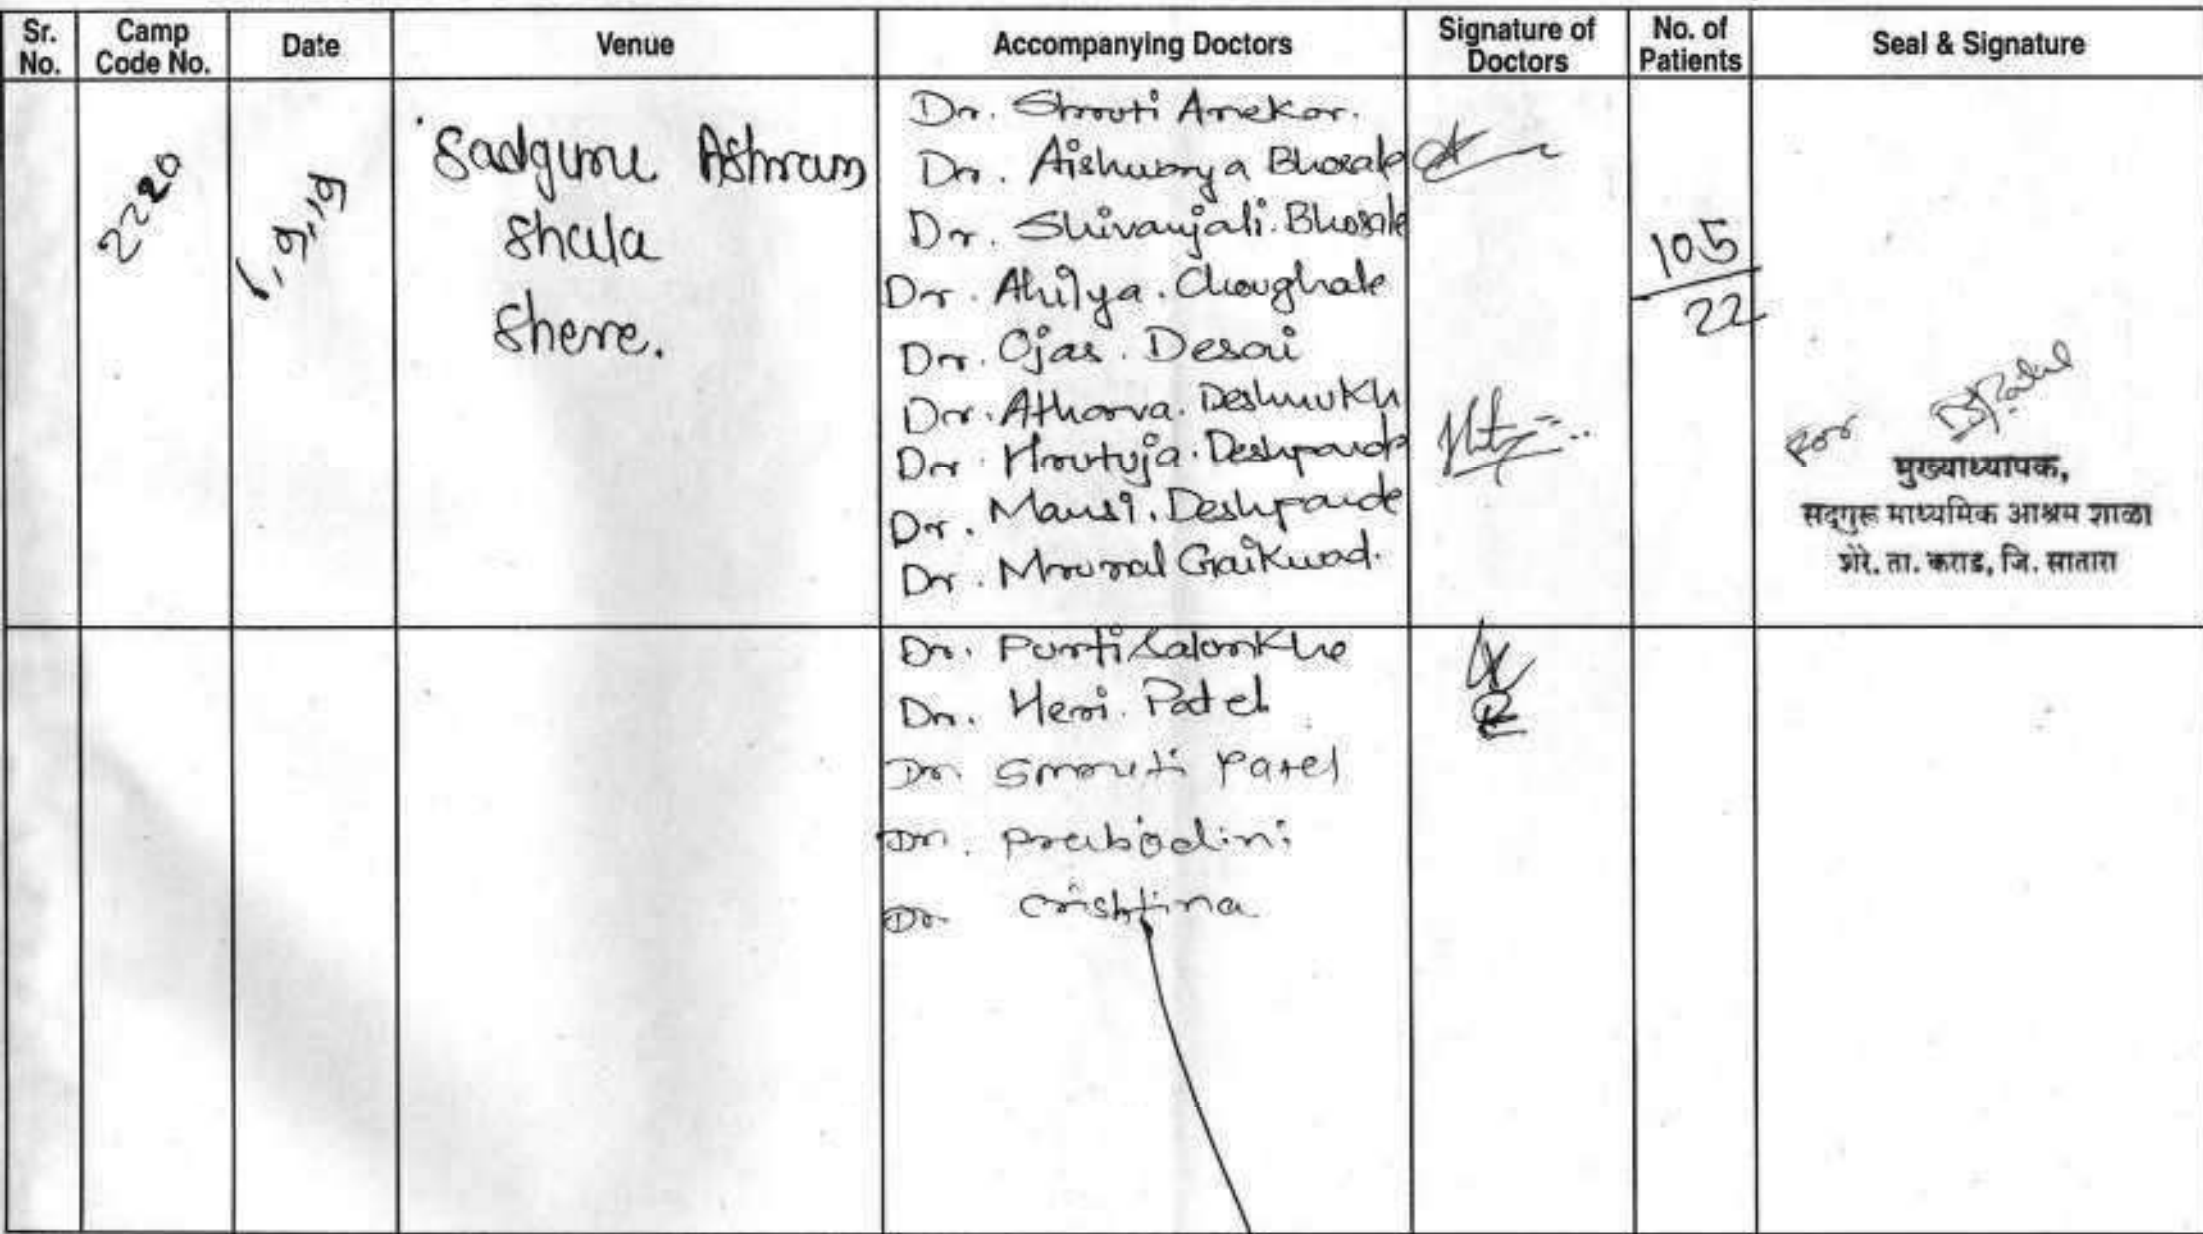 Sr. No.
Camp Code No.
Date
Venue
Accompanying Doctors
Signature of Doctors
No. of Patients
Seal & Signature
2220
Sadguru Ashram
Shala
Shere.
Dr. Shruti Anekar.
Dr. Aishwarya Bhosale
Dr. Shivanjali. Bhosale
Dr. Ahilya. Choughale
Dr. Ojas. Desai
Dr. Atharva. Deshmukh
Dr. Hrutuja. Deshpande
Dr. Mansi. Deshpande
Dr. Mrunal Gaikwad.
105
22
for
मुख्याध्यापक,
सद्गुरू माध्यमिक आश्रम शाळा
शेरे. ता. कराड, जि. सातारा
Dr. Purti Salonkhe
Dr. Heni. Patel
Dr. Smruti Patel
Dr. Prabodini
Dr. Crishtina